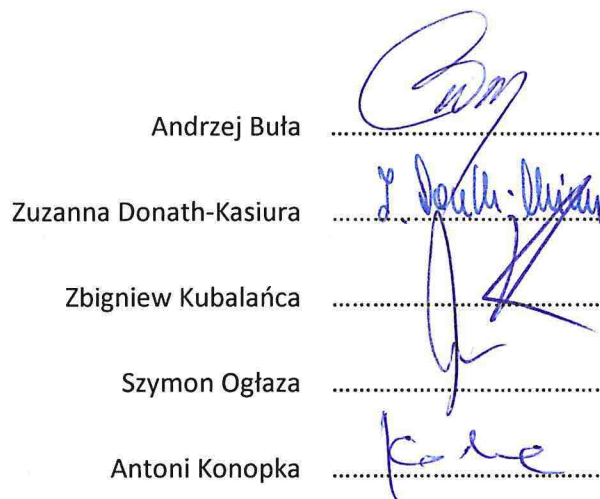 Andrzej Buła ..............................
Zuzanna Donath-Kasiura ..............................
Zbigniew Kubalańca ..............................
Szymon Ogłaza ..............................
Antoni Konopka ..............................